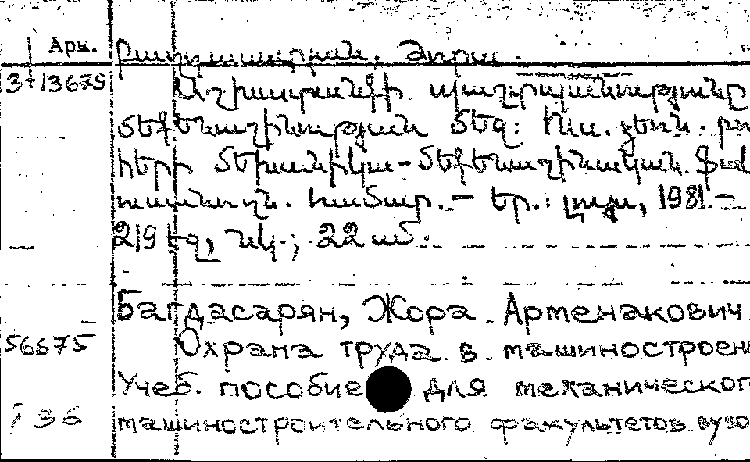 Արմ. Բաղդասարյան, Ժորա.
Աշխատանքի պաշտպանությունը
մեքենաշինության մեջ: Ուս. ձեռն.
մեխանիկա-մեքենաշինական ֆակ
համար. – Եր.: Լույս, 1981.–
219 էջ, նկ.; 22 սմ.
Багдасарян, Жора Арменакович.
56675 Охрана труда в машиностроен
Учеб. пособие для механическог
машиностроительного факультетов вузо